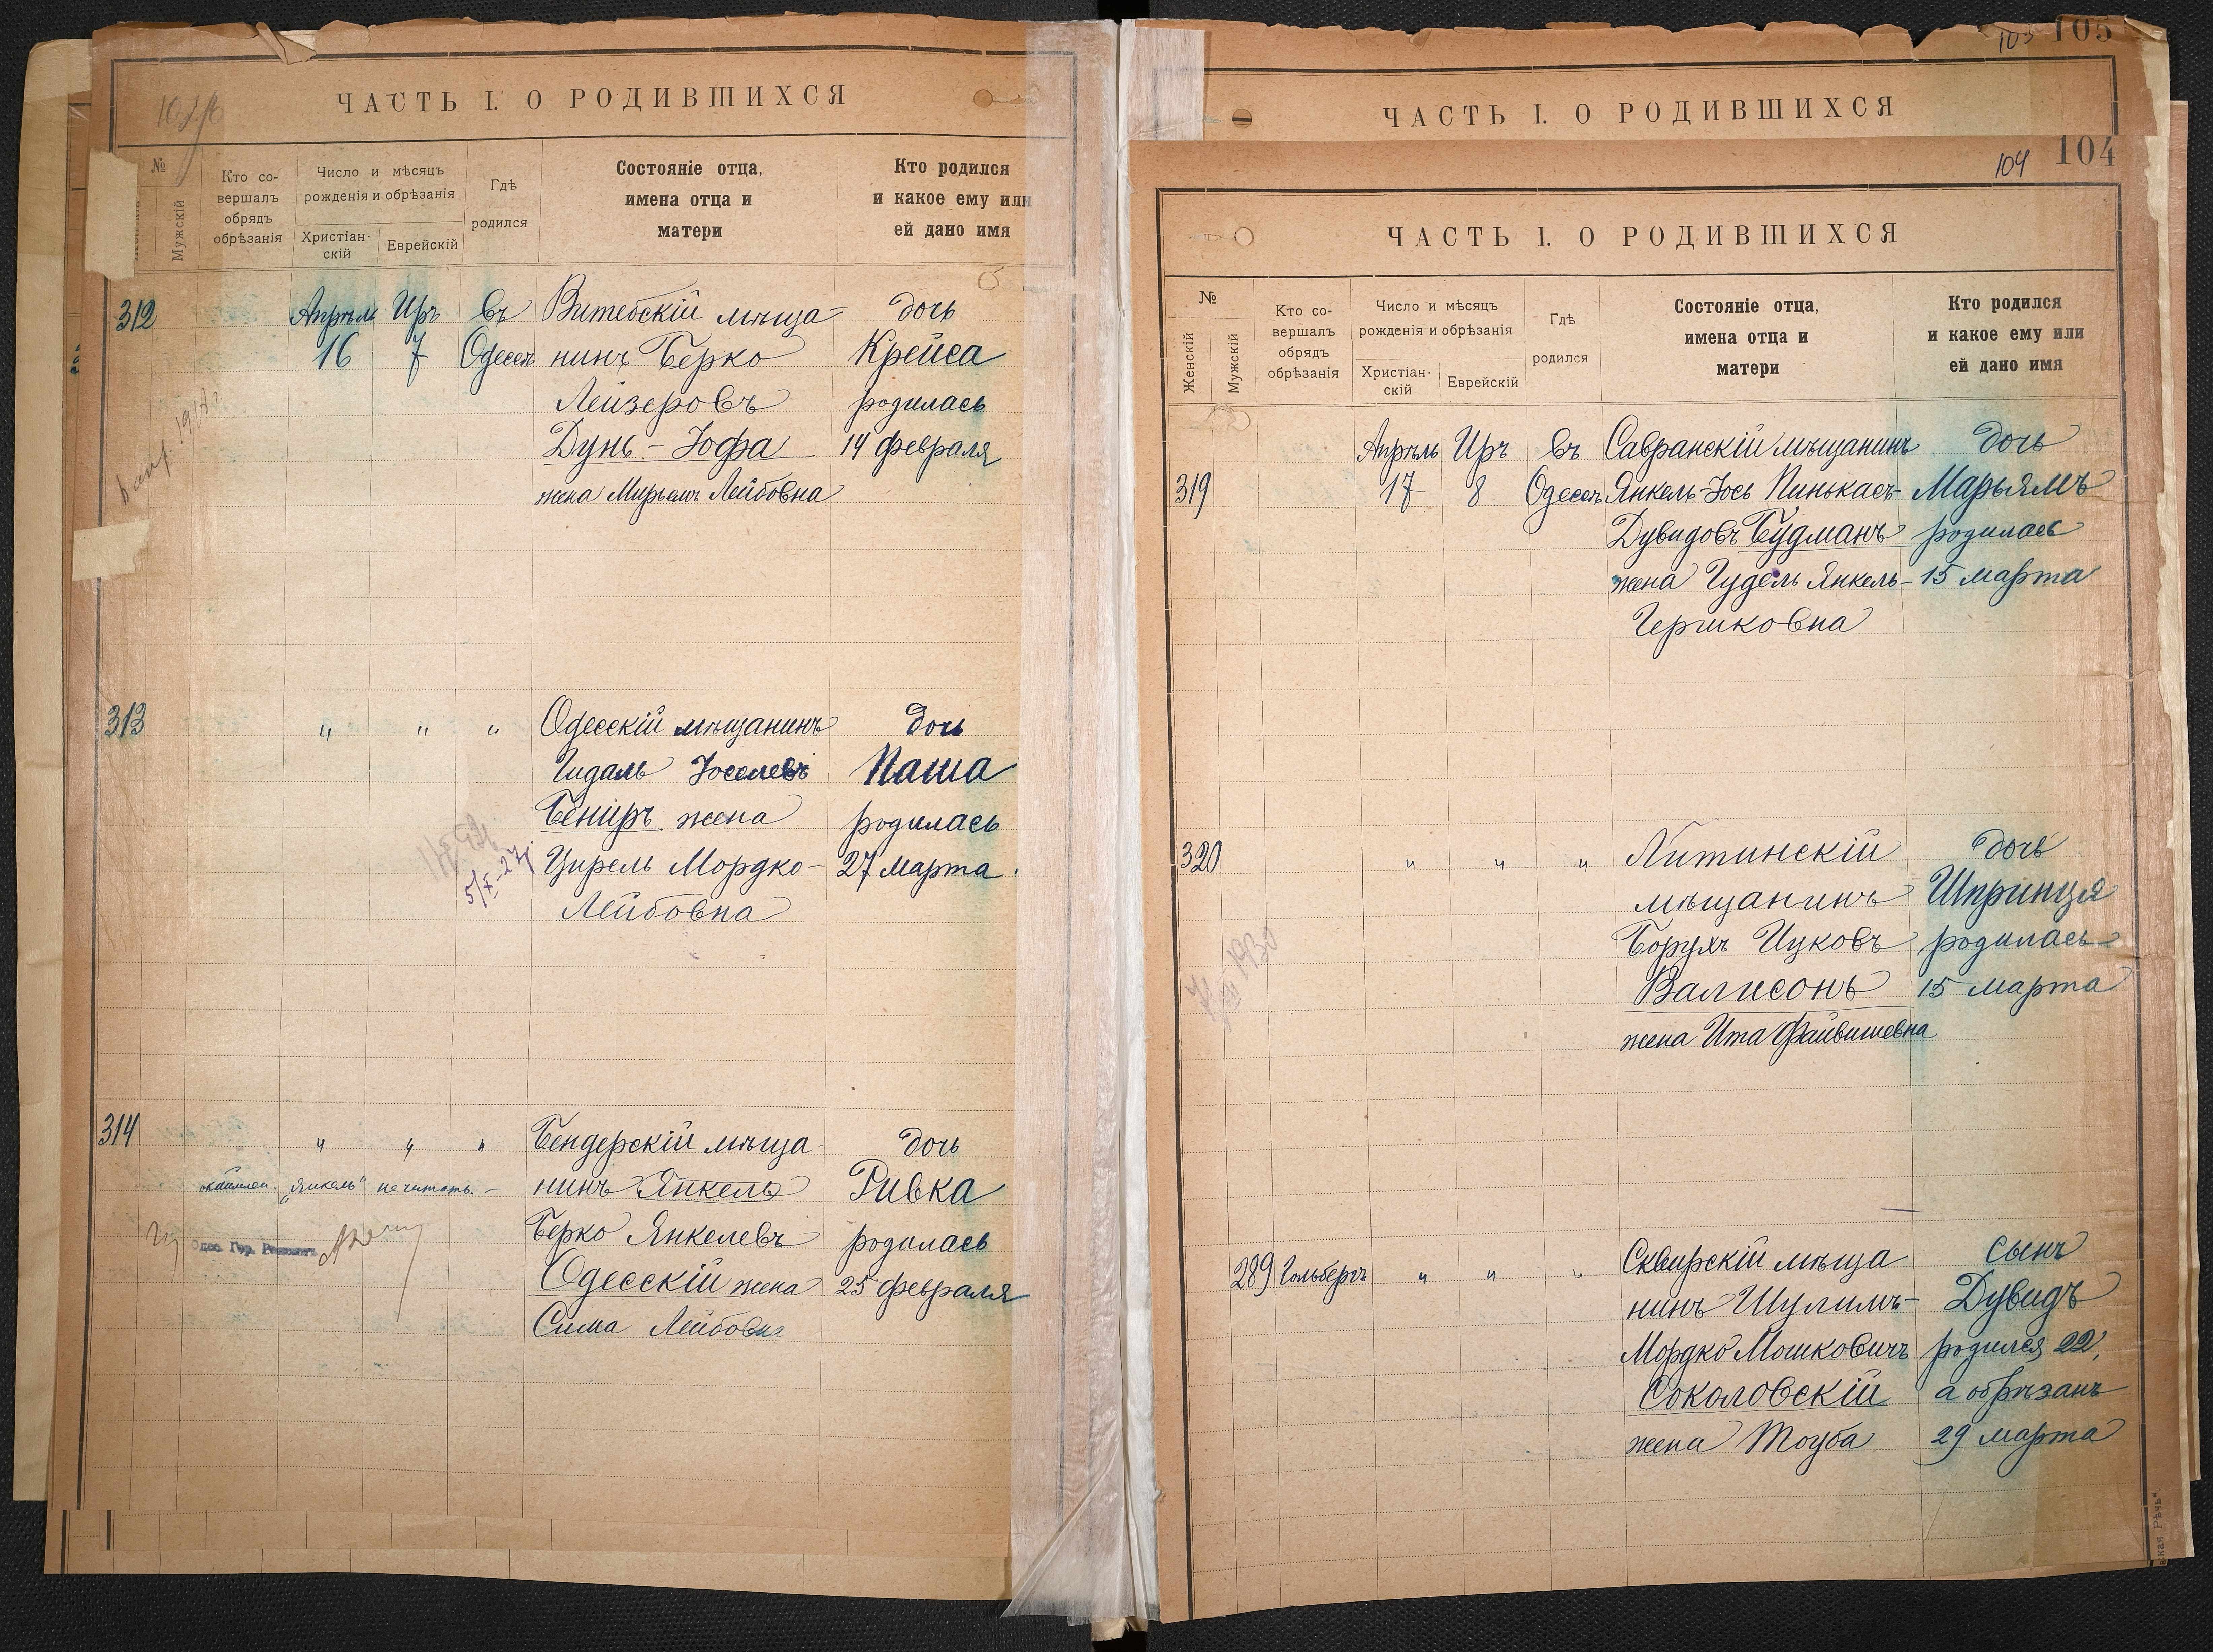 ЧАСТЬ I. О РОДИВШИХСЯ
№
Мужскій
Кто со-
вершалъ
обрядъ
обрѣзанія
Число и мѣсяцъ
рожденія и обрѣзанія
Христіан-
скій
Еврейскій
Гдѣ
родился
Состояніе отца,
имена отца и
матери
Кто родился
и какое ему или
ей дано имя
312 Апрѣль Иръ въ Витебскій мѣща- дочь
16 7 Одессѣ нинъ Берко Крейса
Лейзеровъ родилась
Дунь-Іофа 14 февраля
жена Мирьемъ Лейбовна
313 " " " Одесскій мѣщанинъ дочь
Гидаль Іоселевъ Паша
Бениръ жена родилась
5/X-27 Цирель Мордко- 27 марта
Лейбовна
314 " " " Бендерскій мѣща- дочь
"Янкель" не читать. - нинъ Янкель Ривка
Берко Янкелевъ родилась
Одес. Гор.
Одесскій жена 25 февраля
Сима Лейбовна
103 105
ЧАСТЬ I. О РОДИВШИХСЯ
104 104
ЧАСТЬ I. О РОДИВШИХСЯ
№
Женскій
Мужскій
Кто со-
вершалъ
обрядъ
обрѣзанія
Число и мѣсяцъ
рожденія и обрѣзанія
Христіан-
скій
Еврейскій
Гдѣ
родился
Состояніе отца,
имена отца и
матери
Кто родился
и какое ему или
ей дано имя
Апрѣль Иръ въ Савранскій мѣщанинъ дочь
319 17 8 Одессѣ Янкель-Іось Пинькасъ- Марьямъ
Дувидовъ Будманъ родилась
жена Гудель Янкель- 15 марта
Гершковна
320 " " " Литинскій дочь
мѣщанинъ Шпринця
Борухъ Ицковъ родилась
Валисонъ 15 марта
жена Ита Файвишевна
1930
289 Гольбергъ " " " Сквирскій мѣща сынъ
нинъ Шулимъ- Дувидъ
Мордко Мошковичъ родился 22,
Соколовскій а обрѣзанъ
жена Тоуба 29 марта